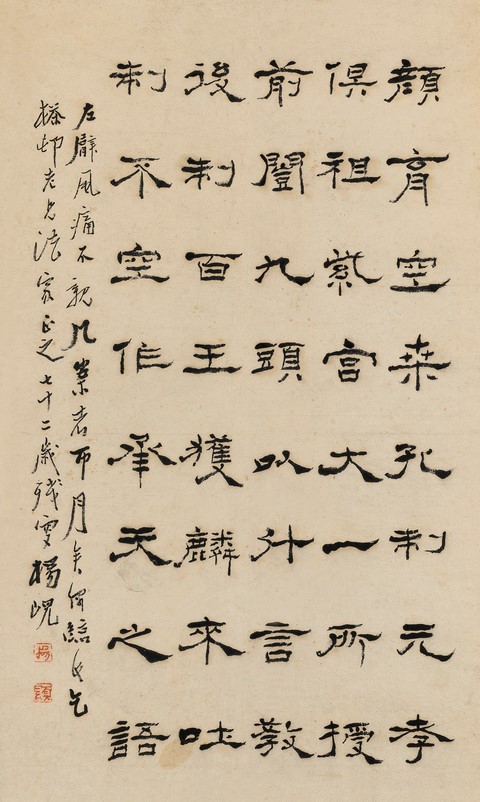 顏育空桒孔制元孝
俱祖紫宮大一所授
前闓九頭以什言教
後制百王獲麟來吐
制不空作承天之語
左臂風痛不親几案者帀月矣偶臨此乞
邨老兄法家正之七十二歲殘叟楊峴